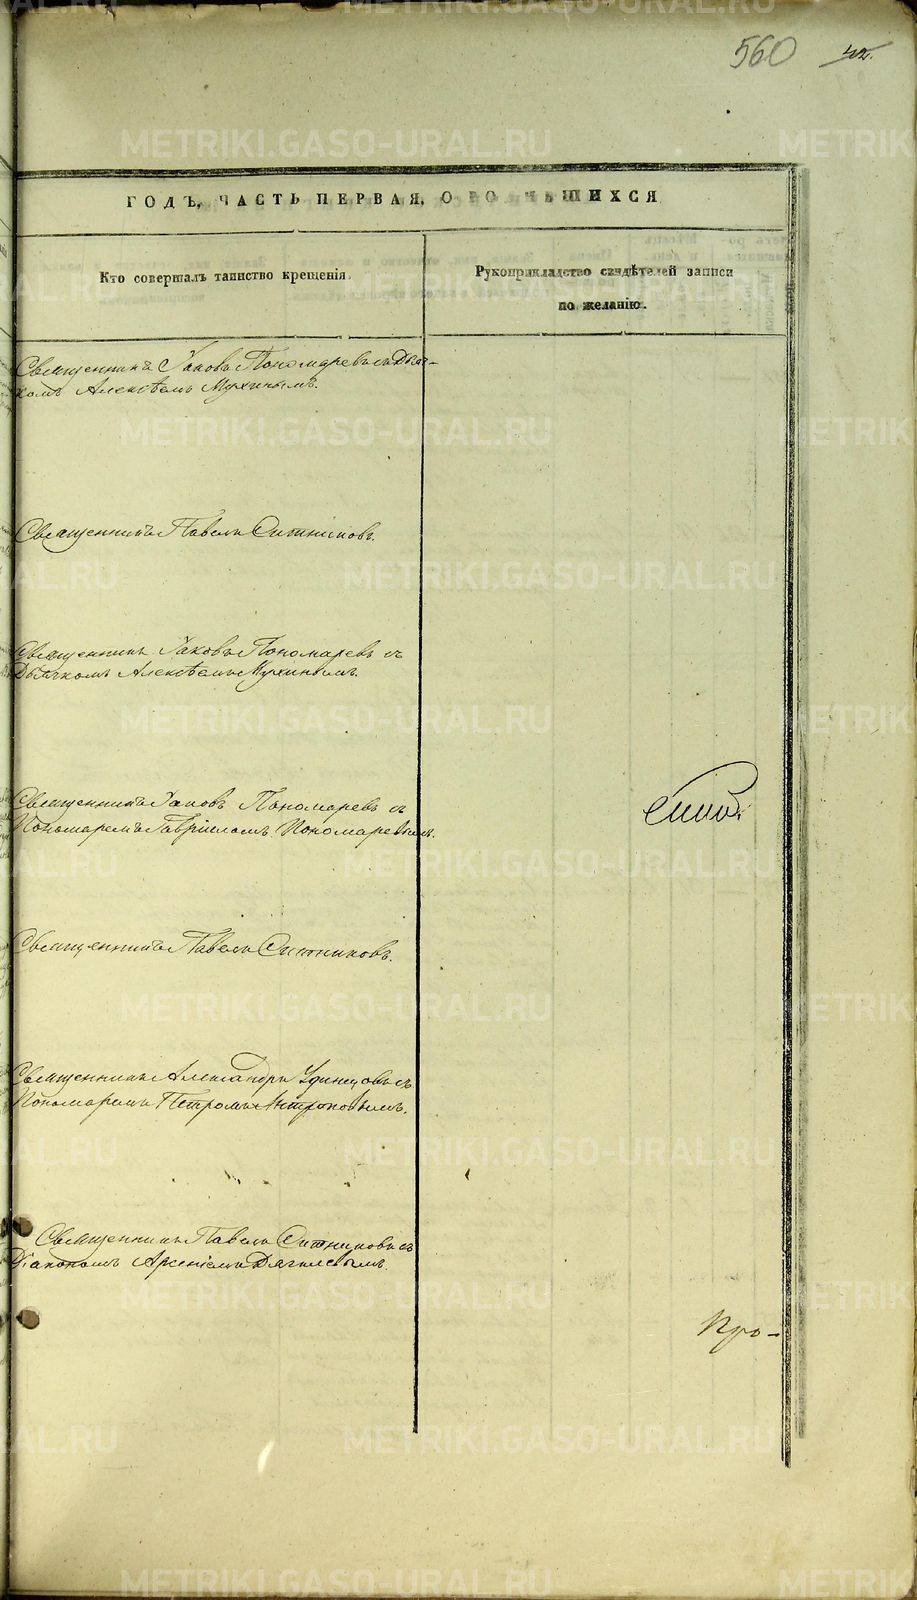 560 42.
ГОДЪ, ЧАСТЬ ПЕРВАЯ, О РО ИВШИХСЯ
Кто совершалъ таинство крещенія.
Рукоприкладство свидѣтелей записи
по желанію.
Священникъ Іаковъ Пономаревъ съ Дьяч-
комъ Алексѣемъ Мухинымъ.
Священникъ Павелъ Ситниковъ.
Священникъ Іаковъ Пономаревъ съ
Дьячкомъ Алексѣемъ Мухинымъ.
Священникъ Іаковъ Пономаревъ съ
Пономаремъ Гавріиломъ Пономаревымъ.
Священникъ Павелъ Ситниковъ.
Священникъ Александръ Удинцовъ съ
Пономаремъ Петромъ Антроповымъ.
Священникъ Павелъ Ситниковъ съ
Діакономъ Арсеніемъ Дягилевымъ.
Про-
METRIKI.GASO-URAL.RU